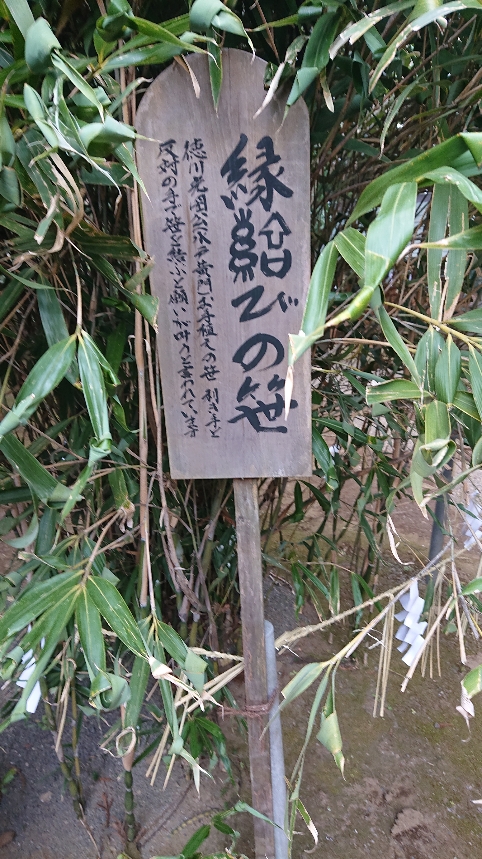 縁結びの笹
徳川光圀公水戸黄門お手植えの笹 利き手と
反対の手で笹を結ぶと願いが叶うと言われています